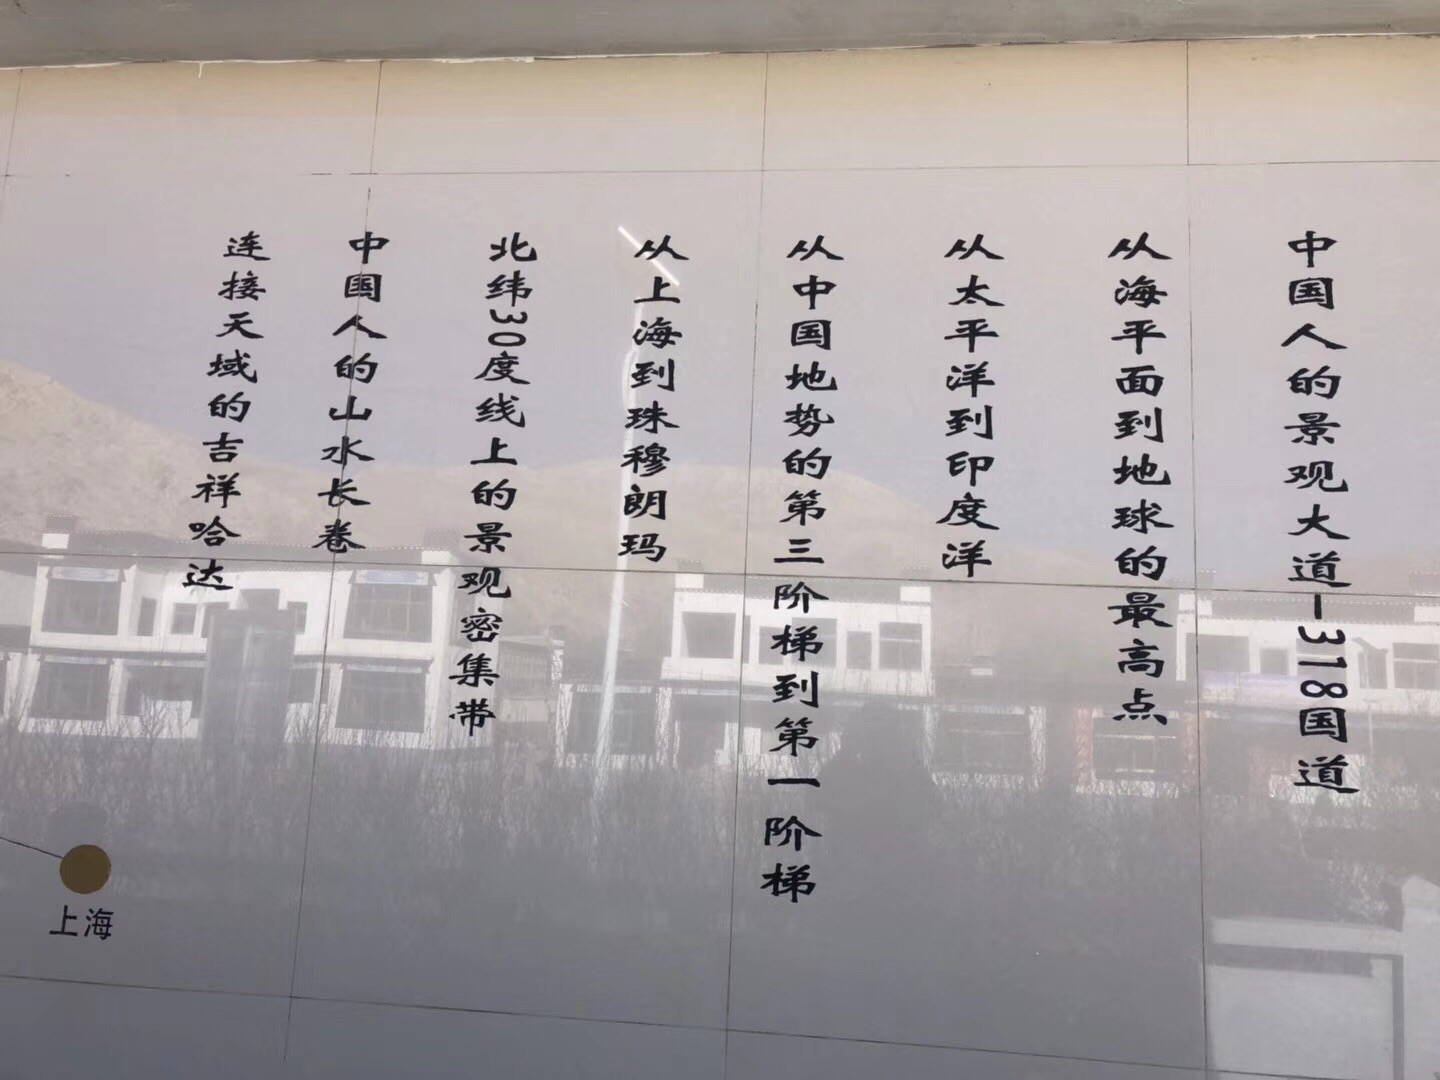 中国人的景观大道-318国道
从海平面到地球的最高点
从太平洋到印度洋
从中国地势的第三阶梯到第一阶梯
从上海到珠穆朗玛
北纬30度线上的景观密集带
中国人的山水长卷
连接天域的吉祥哈达
上海